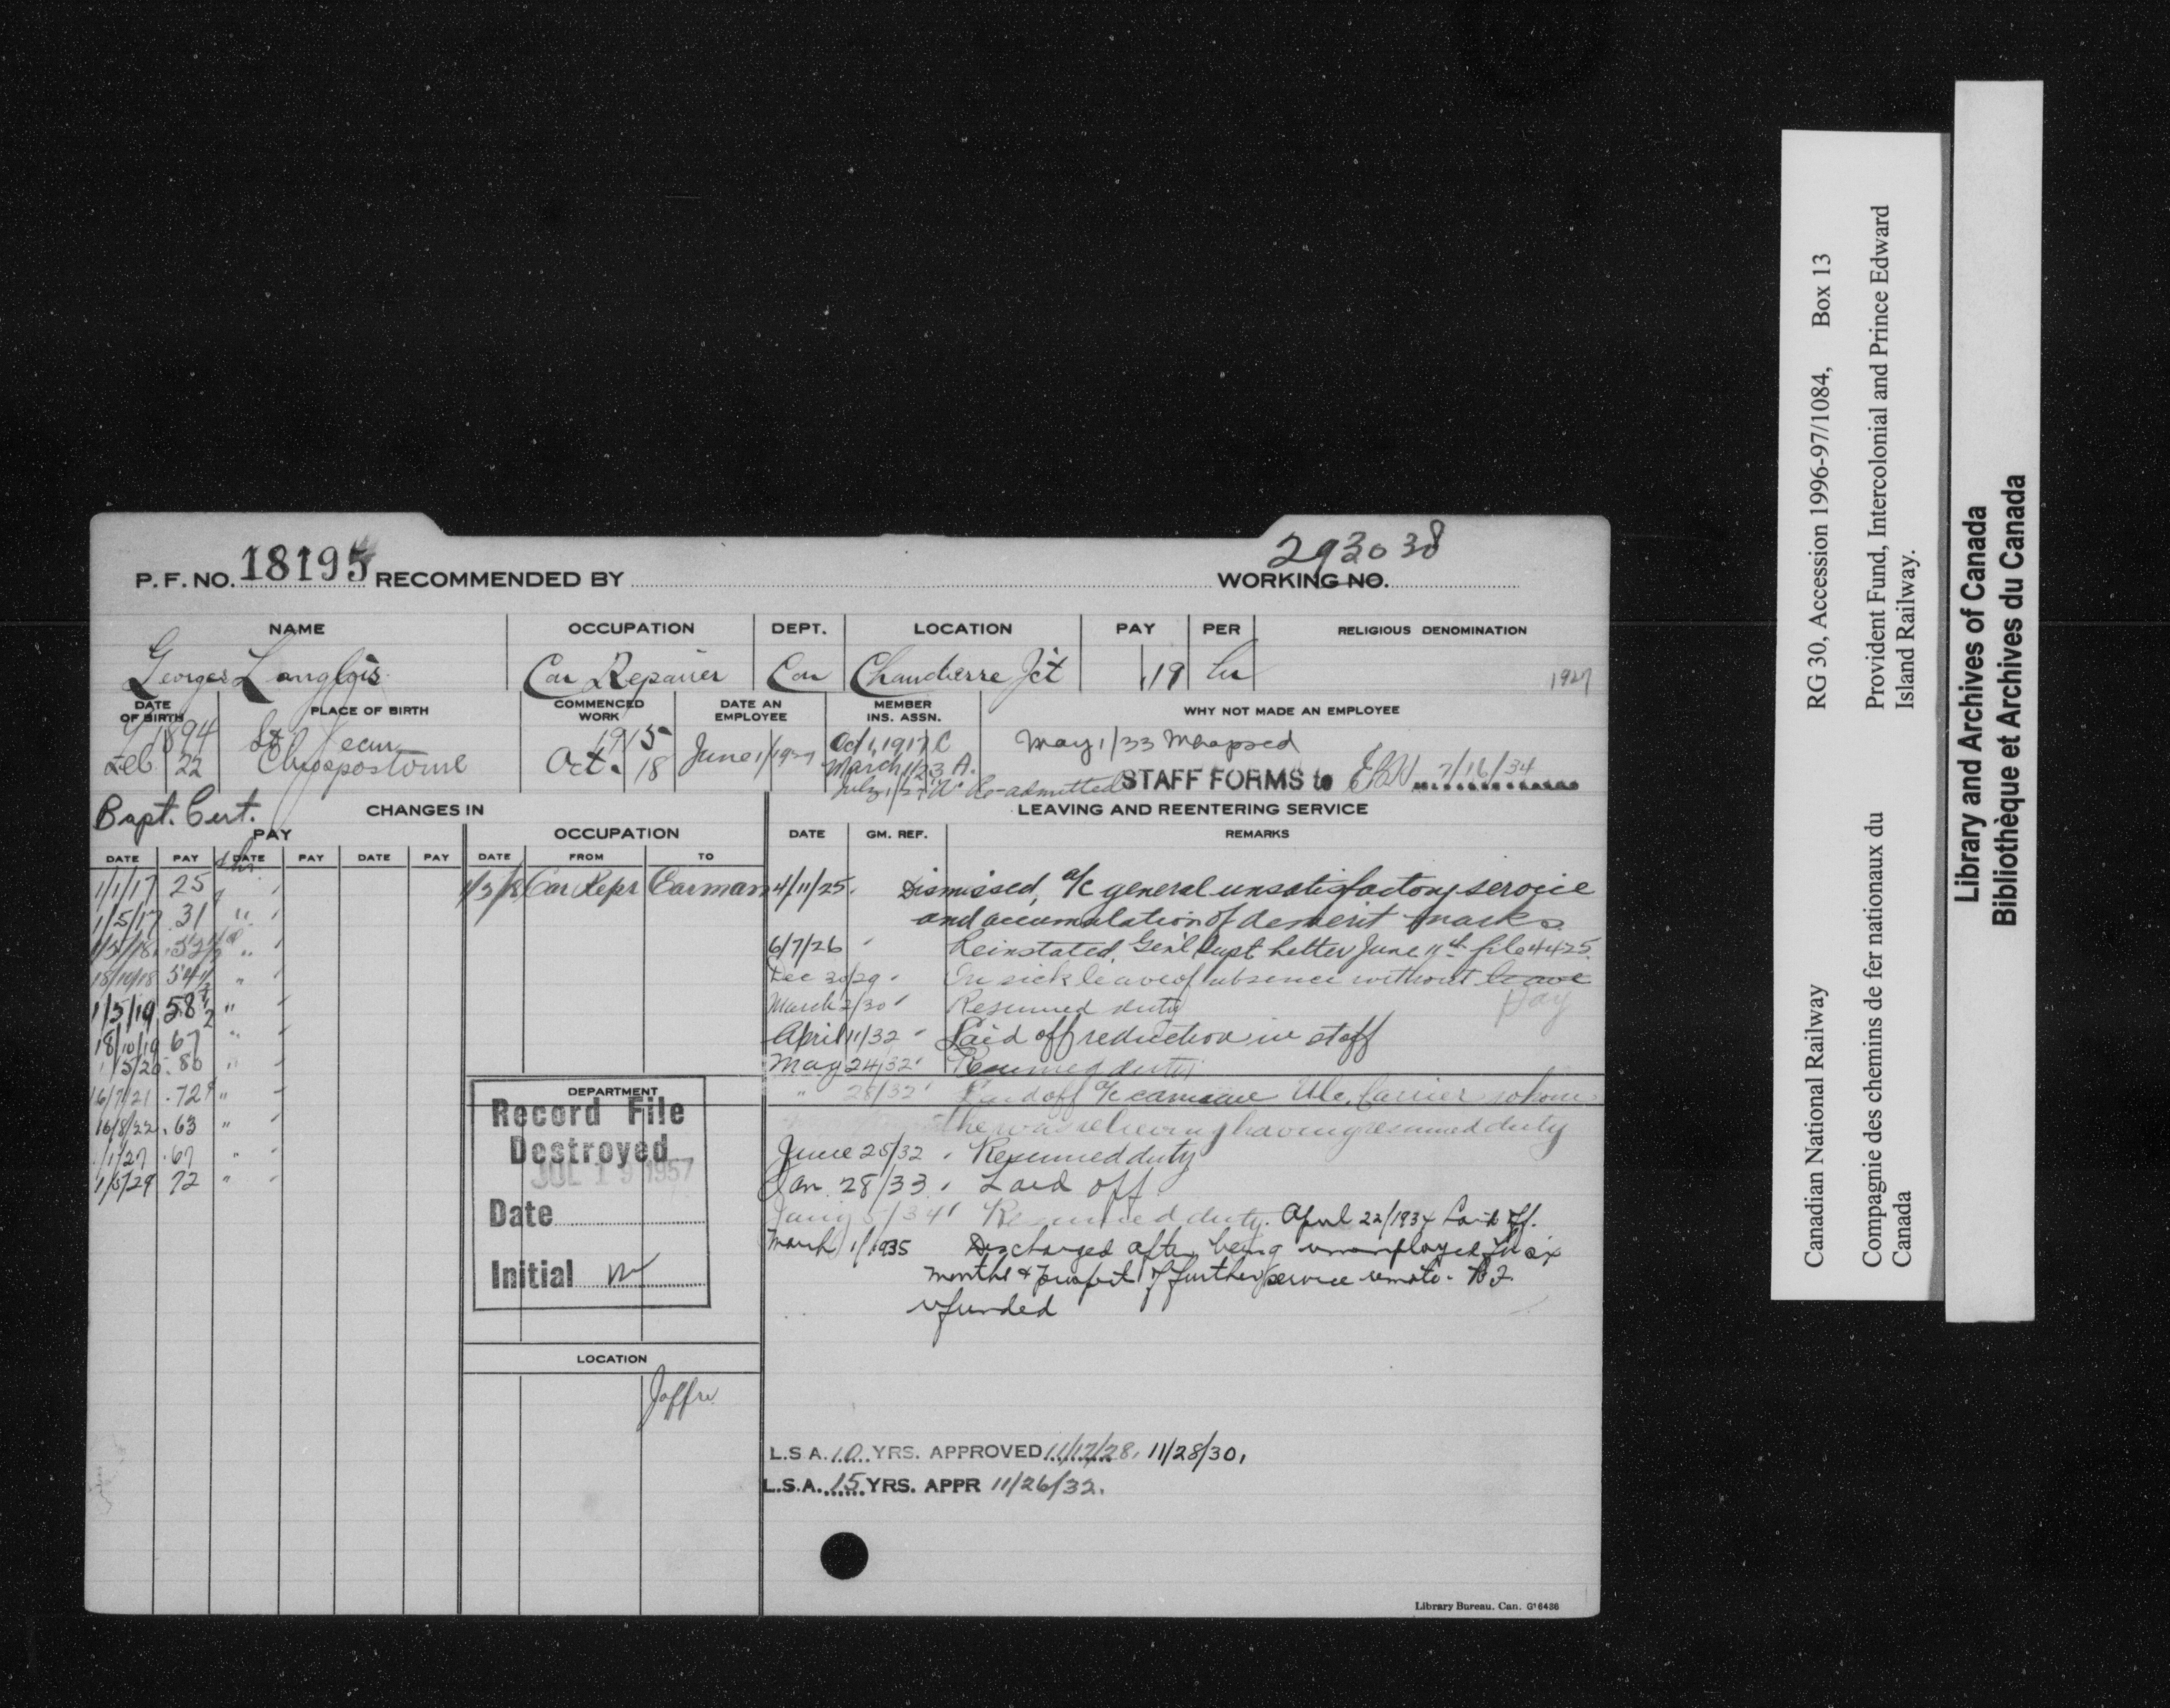 P. F. NO. 18195 RECOMMENDED BY
293038
WORKING NO.
NAME OCCUPATION DEPT. LOCATION PAY PER RELIGIOUS DENOMINATION
Georges Langlois Car Repairer Car Chaudierre Jct .19 hr 1927
DATE OF BIRTH PLACE OF BIRTH COMMENCED WORK DATE AN EMPLOYEE MEMBER INS. ASSN. WHY NOT MADE AN EMPLOYEE
1894 St Jean 1915 Oct 1, 1917 C May 1/33
Feb. 22 Oct. 18 June 1/1927 March 1/23 A.
Re-admitted STAFF FORMS to 7/16/34
Bapt. Cert. CHANGES IN LEAVING AND REENTERING SERVICE
PAY OCCUPATION DATE GM. REF. REMARKS
DATE PAY DATE PAY DATE PAY DATE FROM TO
1/1/17 25 1/3/18 Car Repr Carman
1/5/17 31 "
"
18/10/18 "
1/5/19 58½ "
18/10/19 67 "
1/5/20 .80 "
16/7/21 .72 "
16/8/22 .63 "
1/1/27 .67 "
1/5/29 72 "
4/11/25. Dismissed, a/c general unsatisfactory service
and accumulation of demerit marks.
6/7/26 Reinstated, Gen'l Supt letter June 11th file 4425.
Dec 30/29 On sick leave of absence without leave
Pay
March 2/30 Resumed duty
April 11/32 Laid off reduction in staff
May 24/32 Resumed duty
" 28/32 Laid off a/c carman Carrier whom
he was relieving having resumed duty
June 25/32 Resumed duty
Jan. 28/33 Laid off
5/34 Resumed duty. April 22/1934 Laid off.
March 1/1935 Discharged after being unemployed for six
months & prospect of further service remote. P.F.
refunded
DEPARTMENT
Record File
Destroyed
JUL 19 1957
Date
Initial
LOCATION
Joffre
L.S.A. 10 YRS. APPROVED 11/17/28, 11/28/30,
L.S.A. 15 YRS. APPR 11/26/32.
Library Bureau. Can. G16486
Canadian National Railway RG 30, Accession 1996-97/1084, Box 13
Compagnie des chemins de fer nationaux du Canada
Provident Fund, Intercolonial and Prince Edward Island Railway.
Library and Archives of Canada
Bibliothèque et Archives du Canada